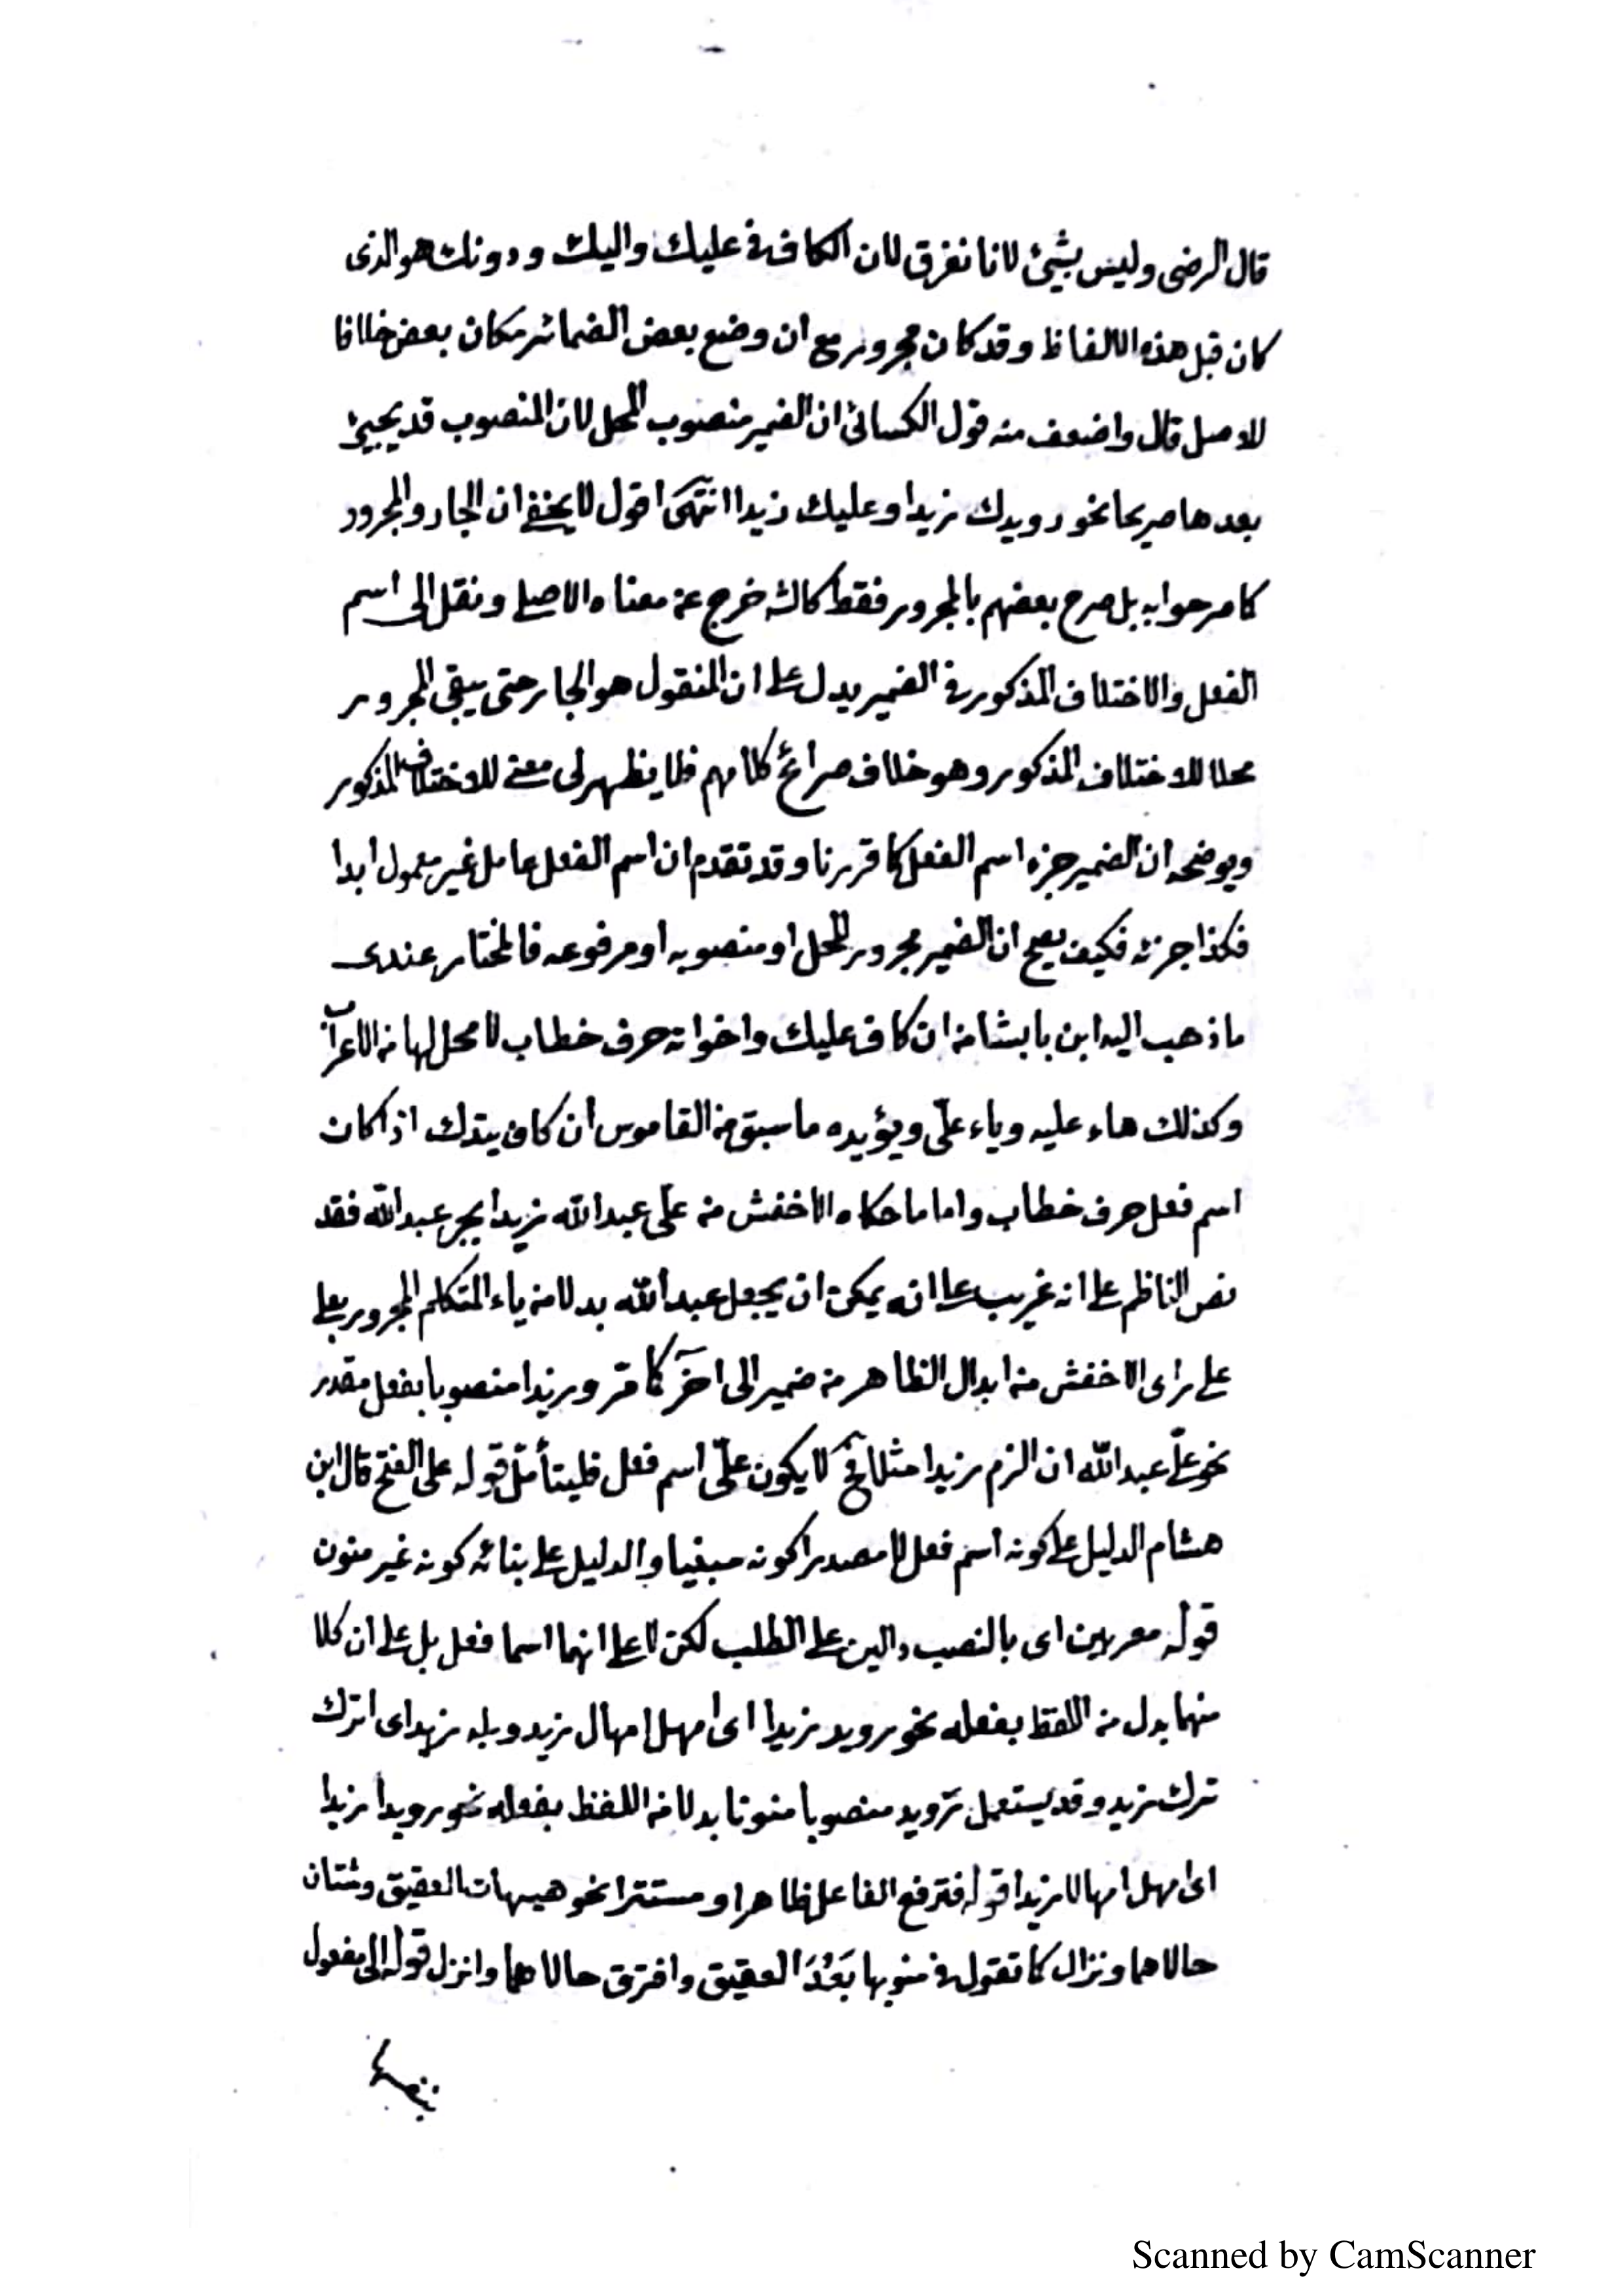 قال الرضى وليس بشيئ لانا نفرق لان الكاف فى عليك واليك ودونك هو الذى
كان قبل هذه الالفاظ وقد كان مجرور مع ان وضع بعض الضمائر مكان بعض خلافا
للاصل قال واضعف منه قول الكسائى ان الضمير منصوب المحل لان المنصوب قد يجيئ
بعدها صريحا نحو رويدك زيدا وعليك زيدا انتهى اقول لا يخفى ان الجار والمجرور
كما صرحوا به بل صرح بعضهم بالمجرور فقط كاك خرج عن معناه الاصلى ونقل الى اسم
الفعل والاختلاف المذكور فى الضمير يدل على ان المنقول هو الجار حتى يبقى المجرور
محلا للاختلاف المذكور وهو خلاف صرائح كلامهم فلا يظهر لى معنى للاختلاف المذكور
ويوضحه ان الضمير جزء اسم الفعل كما قررنا وقد تقدم ان اسم الفعل عامل غير معمول ابدا
فكذا جزئه فكيف يصح ان الضمير مجرور المحل او منصوبه او مرفوعه فالمختار عندى
ما ذهب اليه ابن بابشا من ان كاف عليك واخواته حرف خطاب لا محل لها من الاعراب
وكذلك هاء عليه وياء علىّ ويؤيده ما سبق من القاموس ان كاف يتدك اذا كان
اسم فعل حرف خطاب واما ما حكاه الاخفش من علىّ عبد الله زيدا بجر عبد الله فقد
نص الناظم على انه غريب على انه يمكن ان يجعل عبد الله بدلا من ياء المتكلم المجرور بعلى
على راى الاخفش من ابدال الظاهر من ضمير الى اخر كما مرّ وزيدا منصوبا بفعل مقدر
نحو علىّ عبد الله ان الزم زيدا مثلا فح لا يكون علىّ اسم فعل فليتأمل قوله على الفتح قال ابن
هشام الدليل على كونه اسم فعل لا مصدرا كونه مبنيا والدليل على بنائه كونه غير منون
قوله معربين اى بالنصب دالين على الطلب لكن لا على انهما اسما فعل بل على ان كلا
منهما بدل من اللفظ بفعله نحو رويد زيدا اى امهل امهال زيد وبله زيد اى اترك
ترك زيد وقد يستعمل رويد منصوبا منونا بدلا من اللفظ بفعله نحو رويدا زيدا
اى امهل امهالا زيدا قوله فترفع الفاعل ظاهرا ومستترا نحو هيهات العقيق وشتان
حالاهما ونزال كما تقول فى منوبها بَعُدَ العقيق وافترق حالاهما وانزل قوله الى مفعول